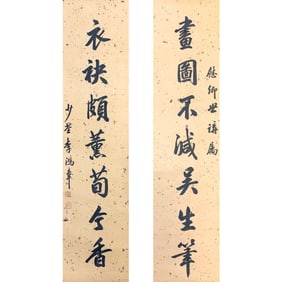 慰卿世講屬
畫圖不減吳生筆
衣袂頗薰荀令香
少荃李鴻章